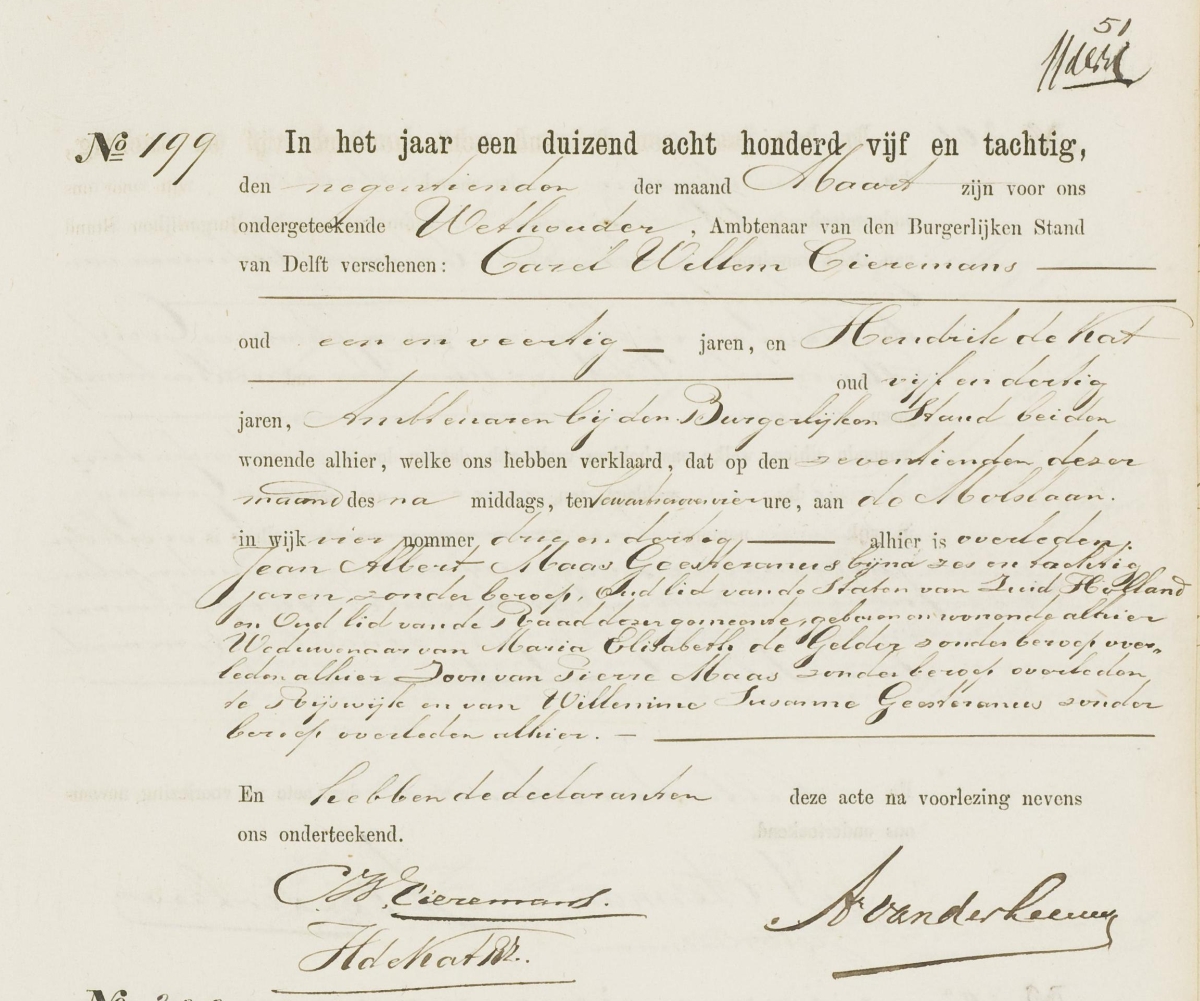 51
No 199 In het jaar een duizend acht honderd vijf en tachtig,
den negentienden der maand Maart zijn voor ons
ondergeteekende Wethouder, Ambtenaar van den Burgerlijken Stand
van Delft verschenen: Carel Willem Cieremans
oud een en veertig jaren, en Hendrik de Kat
oud vijf en dertig
jaren, Ambtenaren bij den Burgerlijken Stand beiden
wonende alhier, welke ons hebben verklaard, dat op den zeventienden dezer
maand des na middags, ten kwart voor vier ure, aan de Molslaan.
in wijk vier nommer drie en dertig alhier is overleden.
Jean Albert Maas Geesteranus bijna zes en tachtig
jaren, zonder beroep, Oud lid van de Staten van Zuid Holland
en Oud lid van de Raad dezer gemeente, geboren en wonende alhier
Weduwenaar van Maria Elisabeth de Gelder zonder beroep over-
leden alhier Zoon van Pierre Maas zonder beroep overleden
te Rijswijk en van Willemine Susanne Geesteranus zonder
beroep overleden alhier.
En hebben de declaranten deze acte na voorlezing nevens
ons onderteekend.
C.W. Cieremans. A. van der Leeuw
HdeKat
No